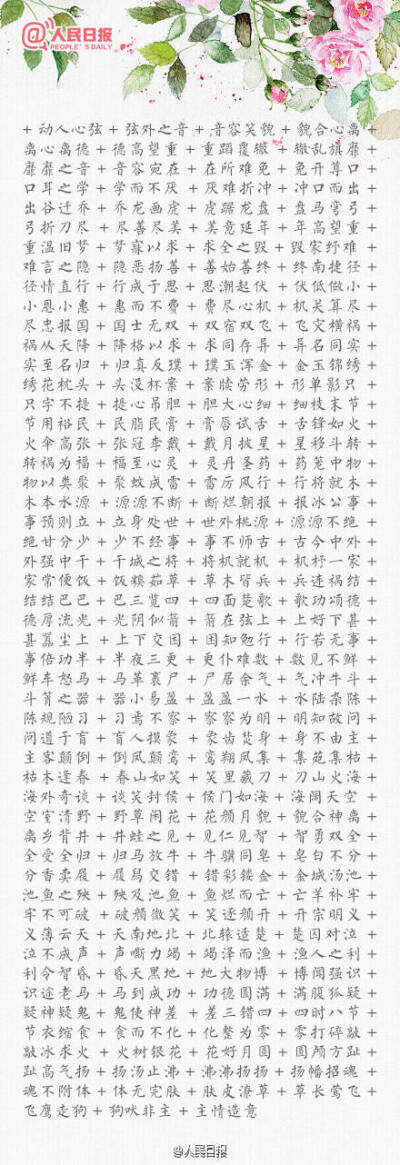 @人民日报
PEOPLE'S DAILY
+ 动人心弦 + 弦外之音 + 音容笑貌 + 貌合心离 +
离心离德 + 德高望重 + 重蹈覆辙 + 辙乱旗靡 +
靡靡之音 + 音容宛在 + 在所难免 + 免开尊口 +
口耳之学 + 学而不厌 + 厌难折冲 + 冲口而出 +
出谷迁乔 + 乔龙画虎 + 虎踞龙盘 + 盘马弯弓 +
弓折刀尽 + 尽善尽美 + 美意延年 + 年高望重 +
重温旧梦 + 梦寐以求 + 求全之毁 + 毁家纾难 +
难言之隐 + 隐恶扬善 + 善始善终 + 终南捷径 +
径情直行 + 行成于思 + 思潮起伏 + 伏低做小 +
小恩小惠 + 惠而不费 + 费尽心机 + 机关算尽 +
尽忠报国 + 国士无双 + 双宿双飞 + 飞灾横祸 +
祸从天降 + 降格以求 + 求同存异 + 异名同实 +
实至名归 + 归真反璞 + 璞玉浑金 + 金玉锦绣 +
绣花枕头 + 头没杯案 + 案牍劳形 + 形单影只 +
只字不提 + 提心吊胆 + 胆大心细 + 细枝末节 +
节用裕民 + 民脂民膏 + 膏唇试舌 + 舌锋如火 +
火伞高张 + 张冠李戴 + 戴月披星 + 星移斗转 +
转祸为福 + 福至心灵 + 灵丹圣药 + 药笼中物 +
物以类聚 + 聚蚊成雷 + 雷厉风行 + 行将就木 +
木本水源 + 源源不断 + 断烂朝报 + 报冰公事 +
事预则立 + 立身处世 + 世外桃源 + 源源不绝 +
绝甘分少 + 少不经事 + 事不师古 + 古今中外 +
外强中干 + 干城之将 + 将机就机 + 机杼一家 +
家常便饭 + 饭糗茹草 + 草木皆兵 + 兵连祸结 +
结结巴巴 + 巴三览四 + 四面楚歌 + 歌功颂德 +
德厚流光 + 光阴似箭 + 箭在弦上 + 上好下甚 +
甚嚣尘上 + 上下交困 + 困知勉行 + 行若无事 +
事倍功半 + 半夜三更 + 更仆难数 + 数见不鲜 +
鲜车怒马 + 马革裹尸 + 尸居余气 + 气冲牛斗 +
斗筲之器 + 器小易盈 + 盈盈一水 + 水陆杂陈 +
陈规陋习 + 习焉不察 + 察察为明 + 明知故问 +
问道于盲 + 盲人摸象 + 象齿焚身 + 身不由主 +
主客颠倒 + 倒凤颠鸾 + 鸾翔凤集 + 集苑集枯 +
枯木逢春 + 春山如笑 + 笑里藏刀 + 刀山火海 +
海外奇谈 + 谈笑封侯 + 侯门如海 + 海阔天空 +
空室清野 + 野草闲花 + 花颜月貌 + 貌合神离 +
离乡背井 + 井蛙之见 + 见仁见智 + 智勇双全 +
全受全归 + 归马放牛 + 牛骥同皂 + 皂白不分 +
分香卖履 + 履舄交错 + 错彩镂金 + 金城汤池 +
池鱼之殃 + 殃及池鱼 + 鱼烂而亡 + 亡羊补牢 +
牢不可破 + 破颜微笑 + 笑逐颜开 + 开宗明义 +
义薄云天 + 天南地北 + 北辕适楚 + 楚囚对泣 +
泣不成声 + 声嘶力竭 + 竭泽而渔 + 渔人之利 +
利令智昏 + 昏天黑地 + 地大物博 + 博闻强识 +
识途老马 + 马到成功 + 功德圆满 + 满腹狐疑 +
疑神疑鬼 + 鬼使神差 + 差三错四 + 四时八节 +
节衣缩食 + 食而不化 + 化整为零 + 零打碎敲 +
敲冰求火 + 火树银花 + 花好月圆 + 圆颅方趾 +
趾高气扬 + 扬汤止沸 + 沸沸扬扬 + 扬幡招魂 +
魂不附体 + 体无完肤 + 肤皮潦草 + 草长莺飞 +
飞鹰走狗 + 狗吠非主 + 主情造意
@人民日报